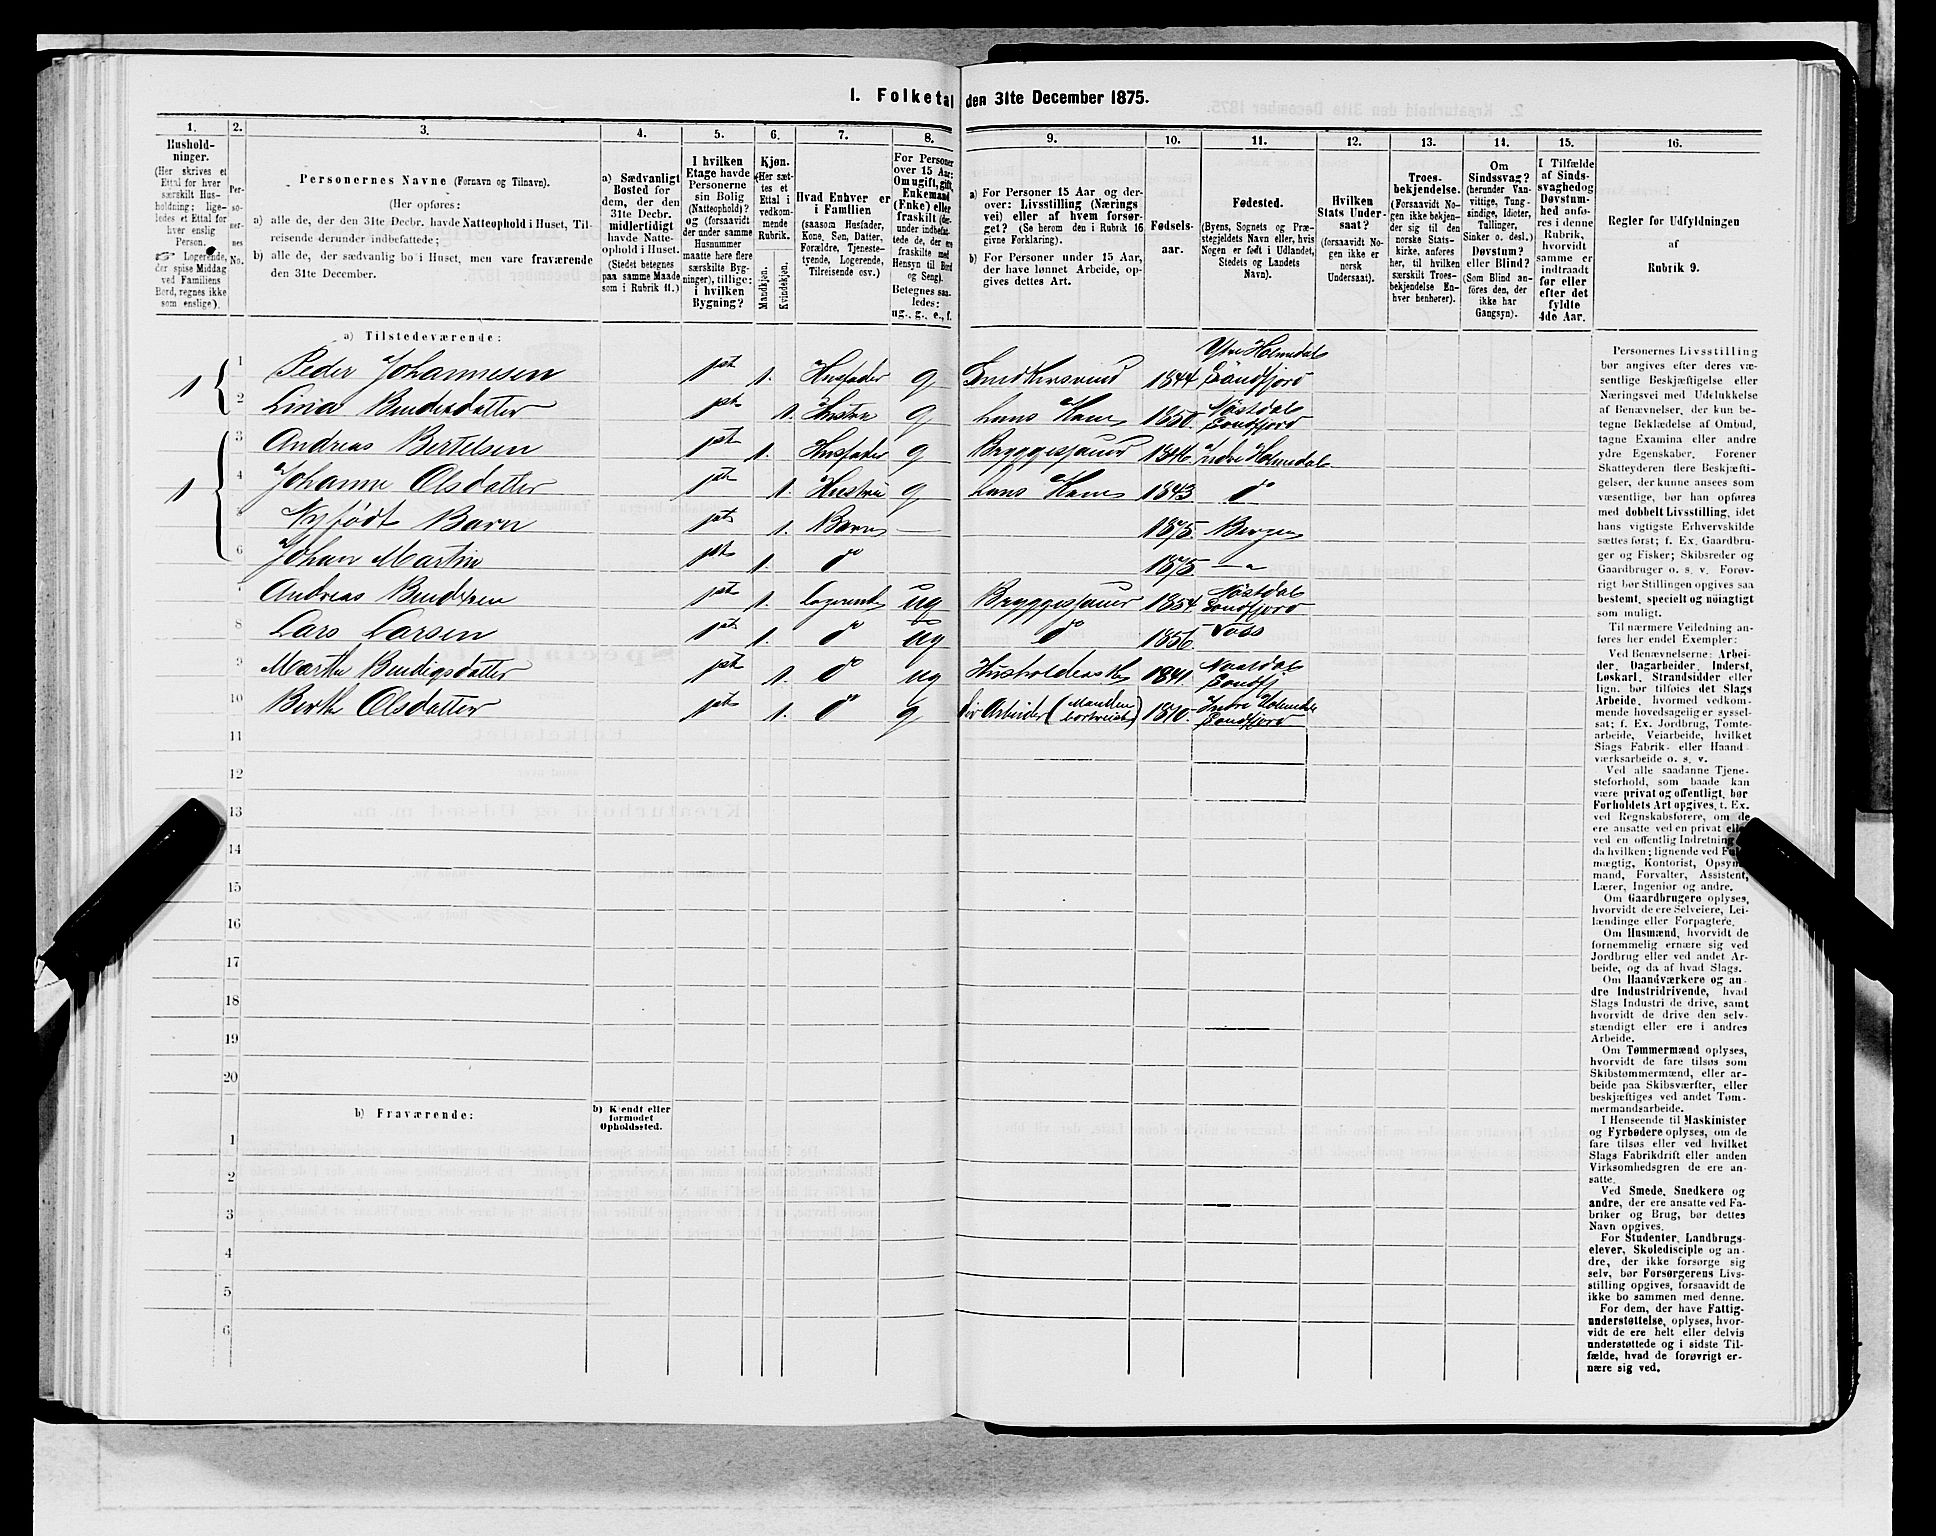 1. Folketal den 31te December 1875.
1. 2. 3. 4. 5. 6. 7. 8. 9. 10. 11. 12. 13. 14. 15. 16.
Hushold-
ninger.
(Her skrives et
Ettal for hver
særskilt Hus-
holdning; lige-
ledes et Ettal for
hver enslig
Person.
Logerende,
der spise Middag
ved Familiens
Bord, regnes ikke
som enslige).
Per-
so-
ner-
nes
No.
Personernes Navne (Fornavn og Tilnavn).
(Her opføres:
a) alle de, der den 31te Decbr. havde Natteophold i Huset, Til-
reisende derunder indbefattede;
b) alle de, der sædvanlig bo i Huset, men vare fraværende
den 31te December.
a) Sædvanligt
Bosted for
dem, der den
31te Decbr.
midlertidigt
havde Natte-
ophold i Huset.
(Stedet betegnes
paa samme Maade
som i Rubrik 11.)
I hvilken
Etage havde
Personerne
sin Bolig
(Natteophold)?
og (forsaavidt
der under samme
Husnummer
maatte høre flere
særskilte Byg-
ninger), tillige:
i hvilken
Bygning?
Kjøn.
(Her sæt-
tes et
Ettal i
vedkom-
mende
Rubrik.
Mandkjøn.
Kvindekjøn.
Hvad Enhver er
i Familien
(saasom Husfader,
Kone, Søn, Datter,
Forældre, Tjeneste-
tyende, Logerende,
Tilreisende osv.)
For Personer
over 15 Aar:
Om ugift, gift,
Enkemand
(Enke) eller
fraskilt (der-
under indbefat-
tede de, der ere
fraskilte med
Hensyn til Bord
og Seng).
Betegnes saa-
ledes:
ug., g., e., f.
a) For Personer 15 Aar og der-
over: Livsstilling (Nærings
vei) eller af hvem forsør-
get? (Se herom den i Rubrik 16
givne Forklaring).
b) For Personer under 15 Aar,
der have lønnet Arbeide, op-
gives dettes Art.
Fødsels-
aar.
Fødested.
(Byens, Sognets og Præ-
stegjeldets Navn eller, hvis
Nogen er født i Udlandet,
Stedets og Landets
Navn).
Hvilken
Stats Under-
saat?
(forsaavidt No-
gen ikke er
norsk
Undersaat).
Troes-
bekjendelse.
(Forsaavidt No-
gen ikke bekjen-
der sig til den
norske Stats-
kirke, anføres
her, til hvilken
særskilt Troes-
bekjendelse En-
hver henhører).
Om
Sindssvag?
(herunder Van-
vittige, Tung-
sindige, Idioter,
Tullinger,
Sinker o. desl.)
Døvstum?
eller Blind?
(Som Blind an-
føres den, der
ikke har
Gangsyn).
I Tilfælde
af Sinds-
svaghed og
Døvstum-
hed anfø-
res i denne
Rubrik,
hvorvidt
samme er
indtraadt
før eller
efter det
fyldte
4de Aar.
Regler for Udfyldningen
af
Rubrik 9.
a) Tilstedeværende:
1 1 Peder Johannesen 1ste 1. Husfader g Snedkersvend 1844 Ytre Holmedal Søndfjord
2 Lina Bendixdatter 1ste 1. Hustru g hans Kone 1850. Søndfjord
1 3 Andreas Bertelsen 1ste 1. Husfader g Bryggesjauer 1846 Indre Holmedal
4 Johanne Olsdatter 1ste 1. Hustru g hans Kone 1843 do
5 Nyfødt Barn 1ste 1. Barn — 1875. Bergen
6 Johan Martin 1ste 1. do 1875 — "
7 Andreas Bendixen 1ste 1. Logerende ug Bryggesjauer 1854 Søndfjord
8 Lars Larsen 1ste 1. do ug do 1856. Voss
9 Marthe Bendigsdatter 1ste 1. do ug 1841. Søndfj
10 Berthe Olsdatter 1ste 1. do g Arbeider (Manden bortreist) 1810. Indre Holmedal Søndfjord
11
12
13
14
15
16
17
18
19
20
b) Fraværende:
b) Kjendt eller
formodet
Opholdssted.
1
2
3
4
5
6
Personernes Livsstilling
bør angives efter deres væ-
sentlige Beskjæftigelse eller
Næringsvei med Udelukkelse
af Benævnelser, der kun be-
tegne Beklædelse af Ombud,
tagne Examina eller andre
ydre Egenskaber. Forener
Skatteyderen flere Beskjæfti-
gelser, der kunne ansees som
væsentlige, bør han opføres
med dobbelt Livsstilling, idet
hans vigtigste Erhvervskilde
sættes først; f. Ex. Gaardbru-
ger og Fisker; Skibsreder og
Gaardbruger o. s. v. Forøv-
rigt bør Stillingen opgives saa
bestemt, specielt og nøiagtigt
som muligt.
Til nærmere Veiledning an-
føres her endel Exempler:
Ved Benævnelserne: Arbei-
der, Dagarbeider, Inderst,
Løskarl, Strandsidder eller
lign. bør tilføies det Slags
Arbeide, hvormed vedkom-
mende hovedsagelig er syssel-
sat; f. Ex. Jordbrug, Tomte-
arbeide, Veiarbeide, hvilket
Slags Fabrik- eller Haand-
værksarbeide o. s. v.
Ved alle saadanne Tjene-
steforhold, som baade kan
være privat og offentligt, bør
Forholdets Art opgives, t. Ex.
ved Regnskabsførere, om de
ere ansatte ved en privat eller
ved en offentlig Indretning og
da hvilken; lignende ved Fuld-
mægtig, Kontorist, Opsyns-
mand, Forvalter, Assistent,
Lærer, Ingeniør og andre.
Om Gaardbrugere oplyses,
hvorvidt de ere Selveiere, Lei-
lændinge eller Forpagtere.
Om Husmænd, hvorvidt de
fornemmelig ernære sig ved
Jordbrug eller ved andet Ar-
beide, og da af hvad Slags.
Om Haandværkere og an-
dre Industridrivende, hvad
Slags Industri de drive, samt
hvorvidt de drive den selv-
stændigt eller ere i andres
Arbeide.
Om Tømmermænd oplyses,
hvorvidt de fare tilsøs som
Skibstømmermænd, eller ar-
beide paa Skibsværfter, eller
beskjæftiges ved andet Tøm-
mermandsarbeide.
I Henseende til Maskinister
og Fyrbødere oplyses, om de
fare tilsøs eller ved hvilket
Slags Fabrikdrift eller anden
Virksomhedsgren de ere an-
satte.
Ved Smede, Snedkere og
andre, der ere ansatte ved Fa-
briker og Brug, bør dettes
Navn opgives.
For Studenter, Landbrugs-
elever, Skoledisciple og an-
dre, der ikke forsørge sig
selv, bør Forsørgerens Livs-
stilling opgives, forsaavidt de
ikke bo sammen med denne.
For dem, der have Fattig-
understøttelse, oplyses, hvor-
vidt de ere helt eller delvis
understøttede og i sidste Til-
fælde, hvad de forøvrigt er-
nære sig ved.